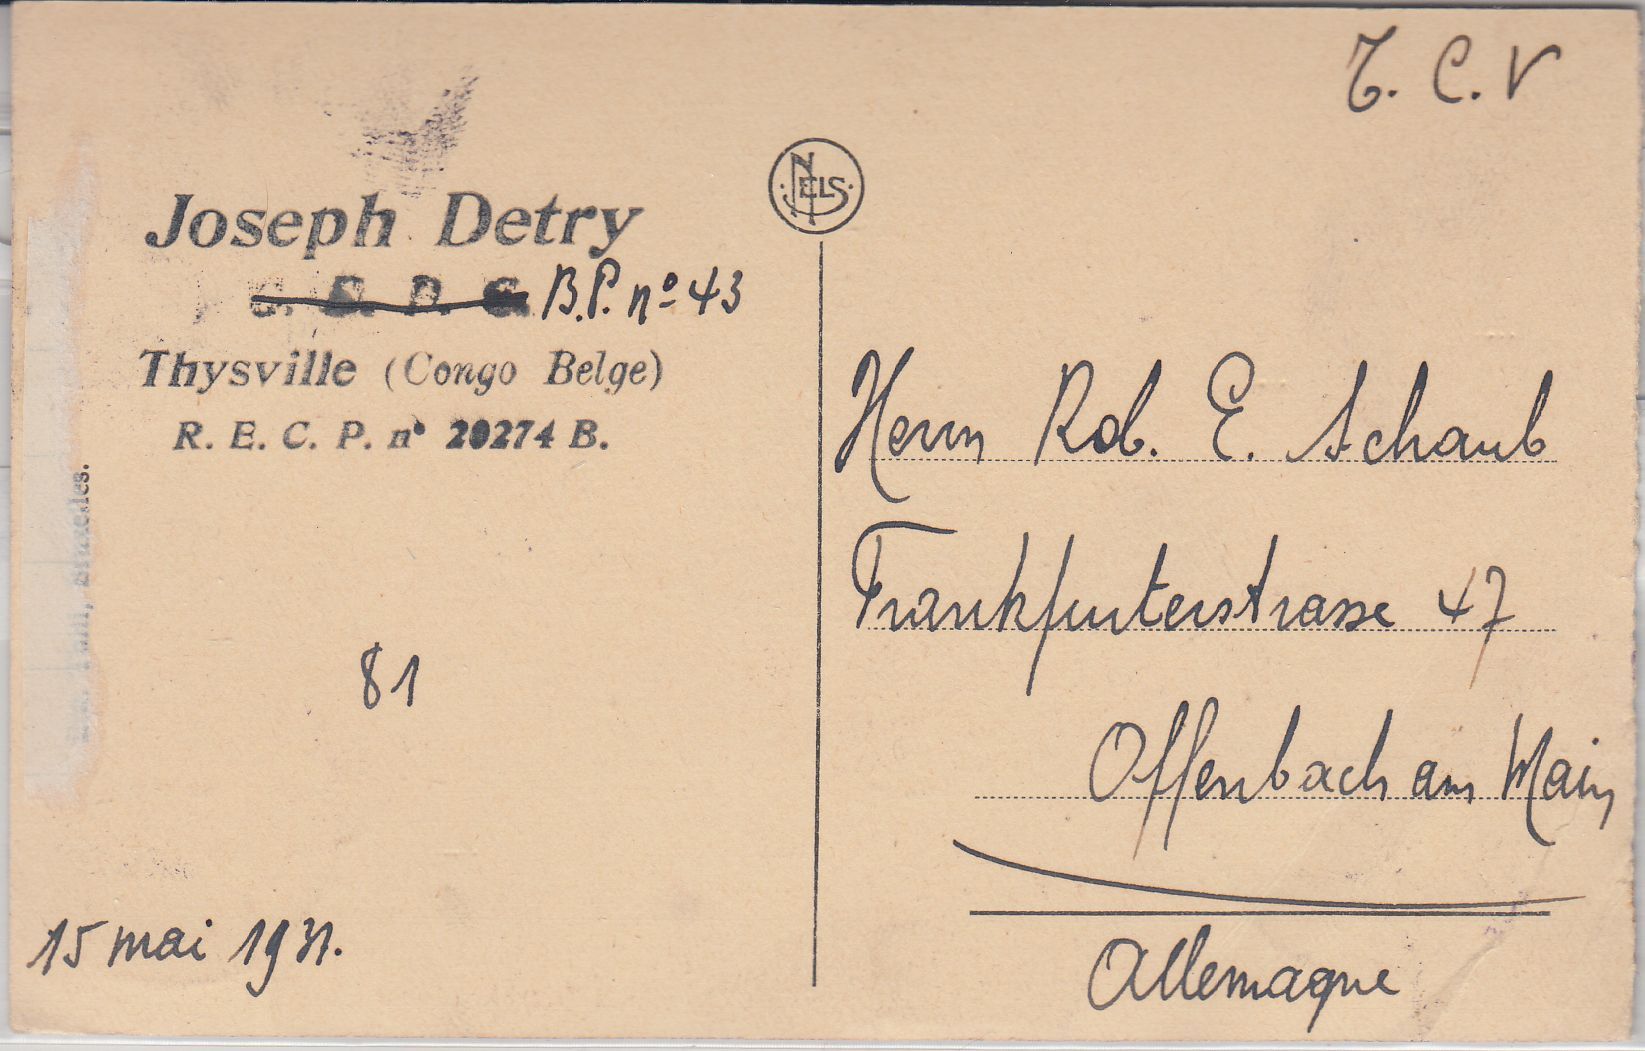 T. C. V
NELS
Joseph Detry
B.P. nº 43
Thysville (Congo Belge)
R. E. C. P. nº 20274 B.
Thill, Bruxelles.
81
15 mai 1931.
Herrn Rob. E. Schaub
Frankfurterstrasse 47
Offenbach am Main
Allemagne